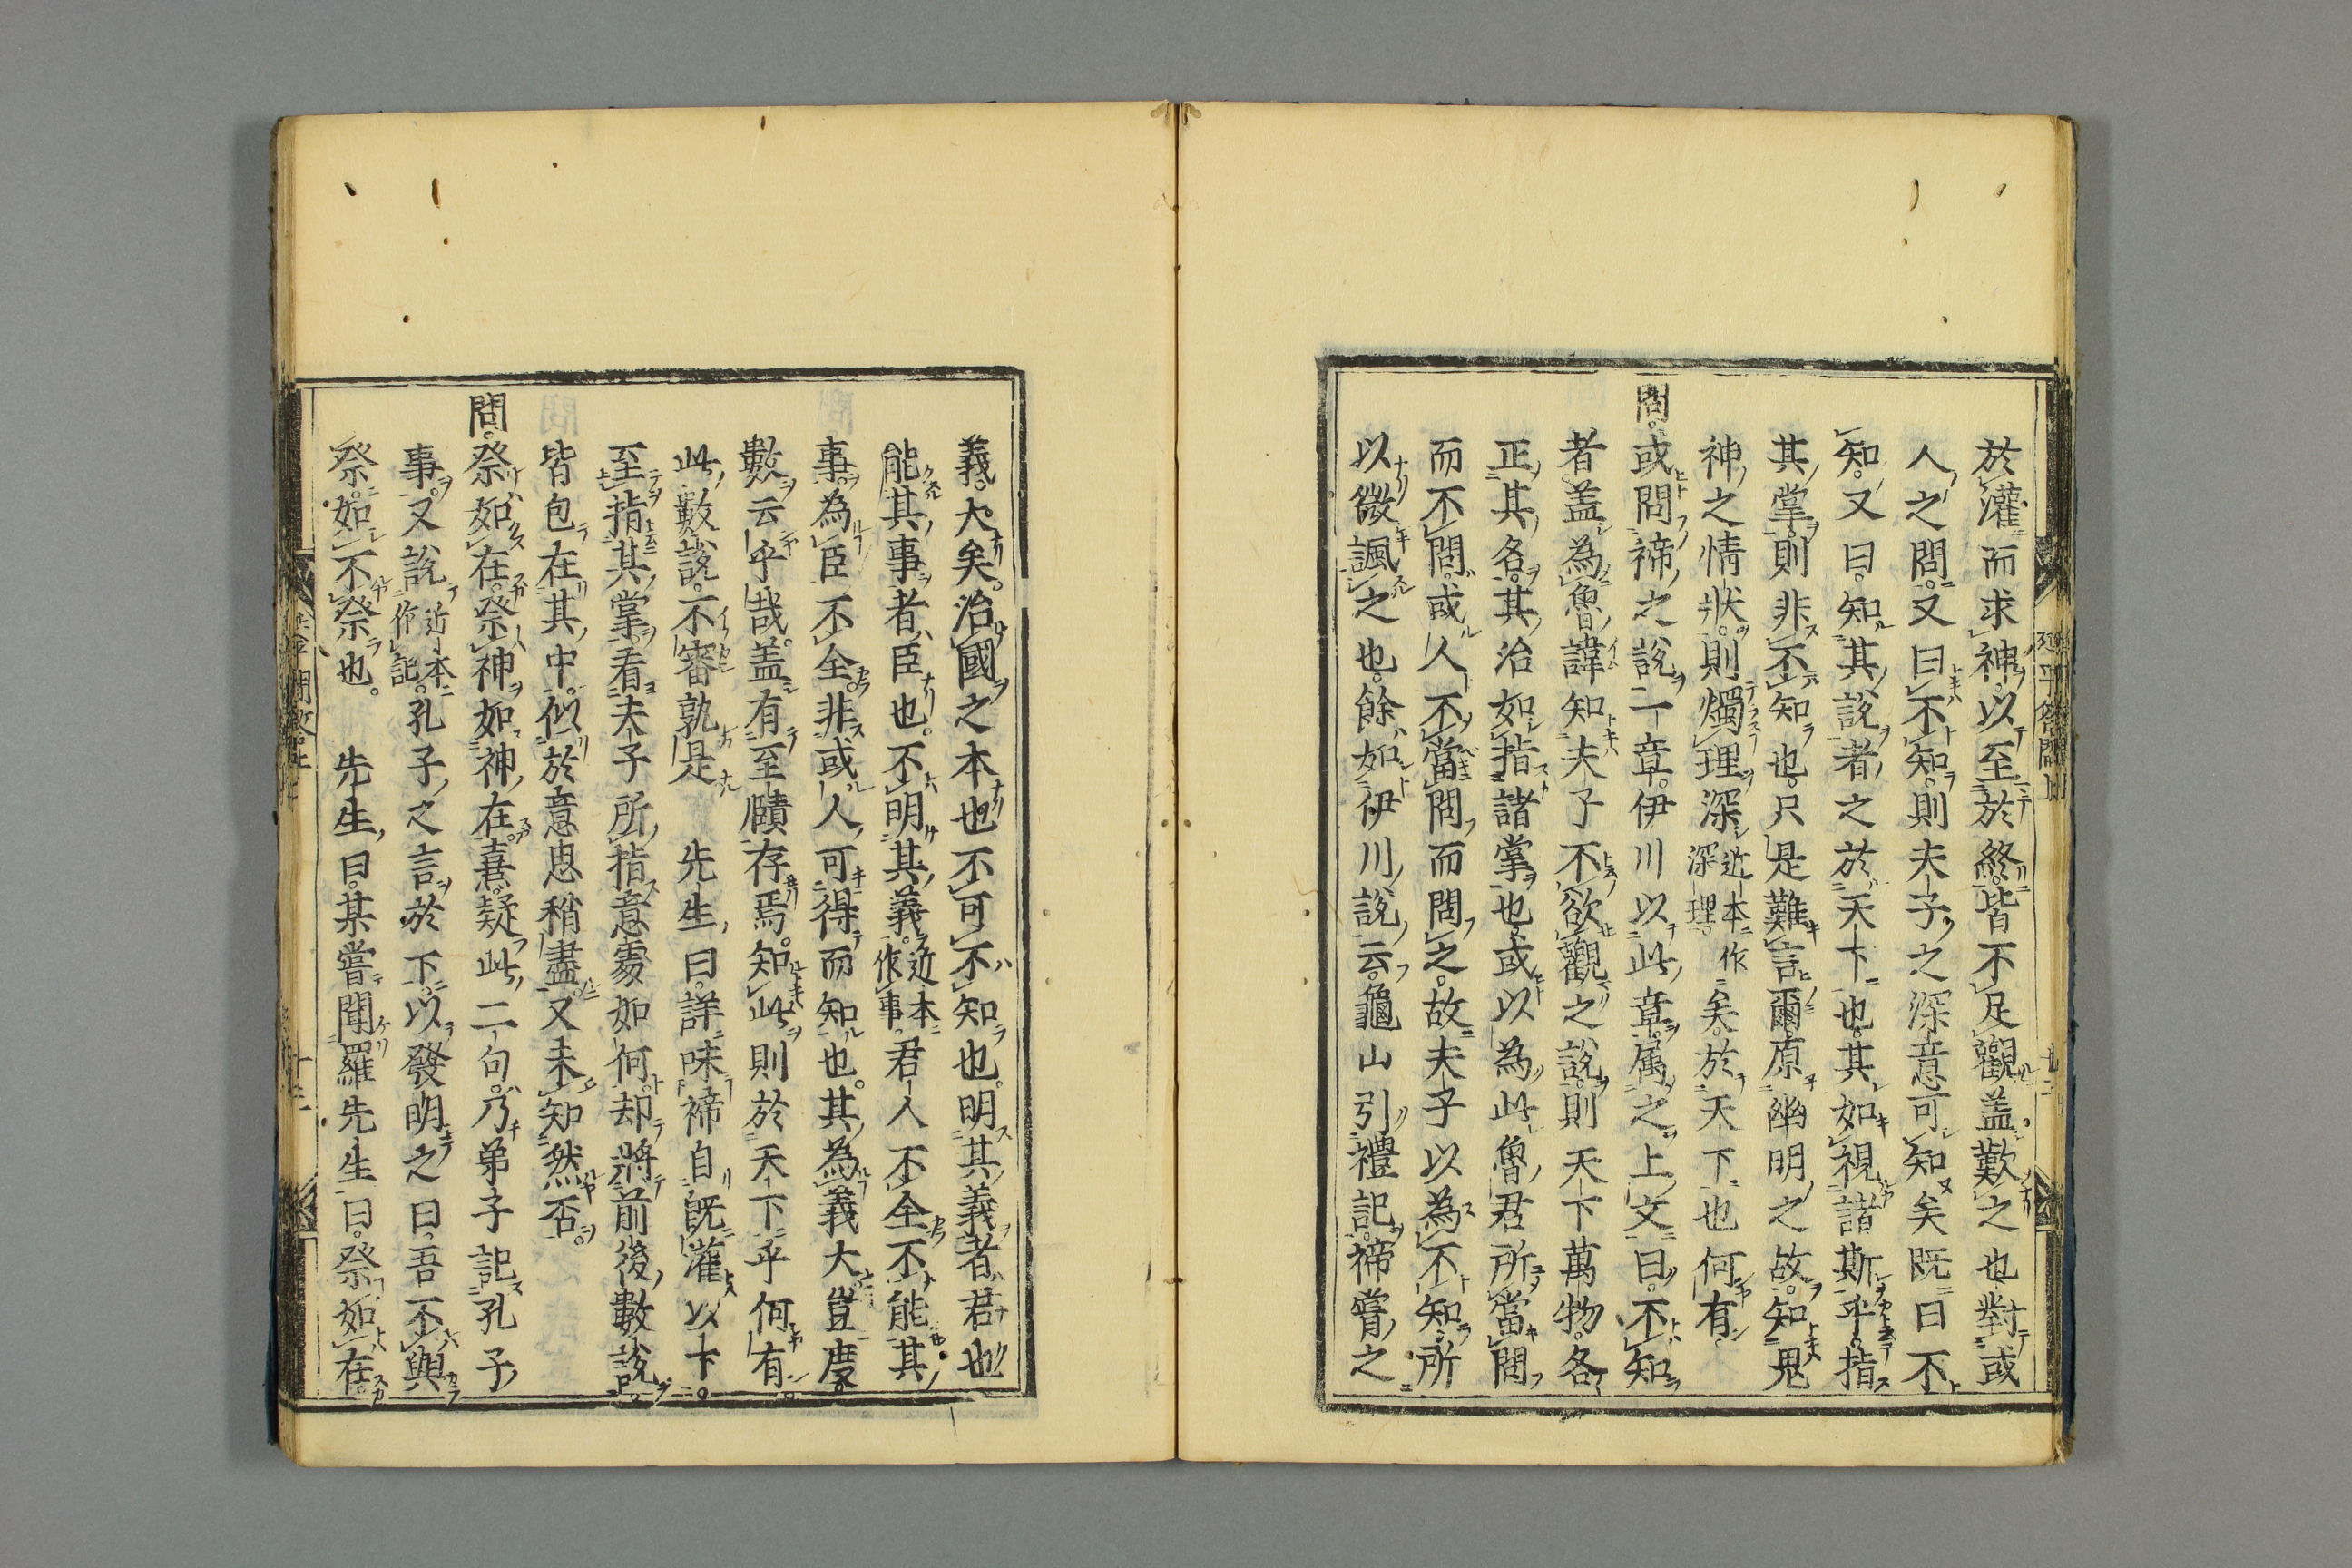 於灌而求神。以至於終。皆不足觀。盖歎之也。對或
人之問。又曰不知。則夫子之深意可知矣。既曰不
知。又曰。知其說者之於天下也。其如視諸斯乎。指
其掌。則非不知也。只是難言爾。原幽明之故。知鬼
神之情狀。則燭理深近本作深理。矣。於天下也何有
問。或問禘之說一章。伊川以此章属之上文曰。不知
者。盖為魯諱。知夫子不欲觀之說。則天下萬物。各
正其名。其治如指諸掌也。或以為此魯君所當問
而不問。或人不當問而問之。故夫子以為不知。所
以微諷之也。餘如伊川說云。龜山引禮記。禘嘗之
義。大矣。治國之本也。不可不知也。明其義者君也
能其事者臣也。不明其義。近本作事。君人不全。不能其
事。為臣不全。非或人可得而知也。其為義大豈度
數云乎哉。盖有至賾存焉。知此則於天下乎何有。
此數說。不審孰是　先生曰。詳味禘自既灌以下。
至指其掌。看夫子所指意處如何。却將前後數說
皆包在其中。似於意思稍盡。又未知然否。
問。祭如在。祭神如神在。熹疑此二句。乃弟子記孔子
事。又說近本作記。孔子之言於下。以發明之曰。吾不與
祭。如不祭也。　先生曰。某嘗聞羅先生曰。祭如在。
延平答問上